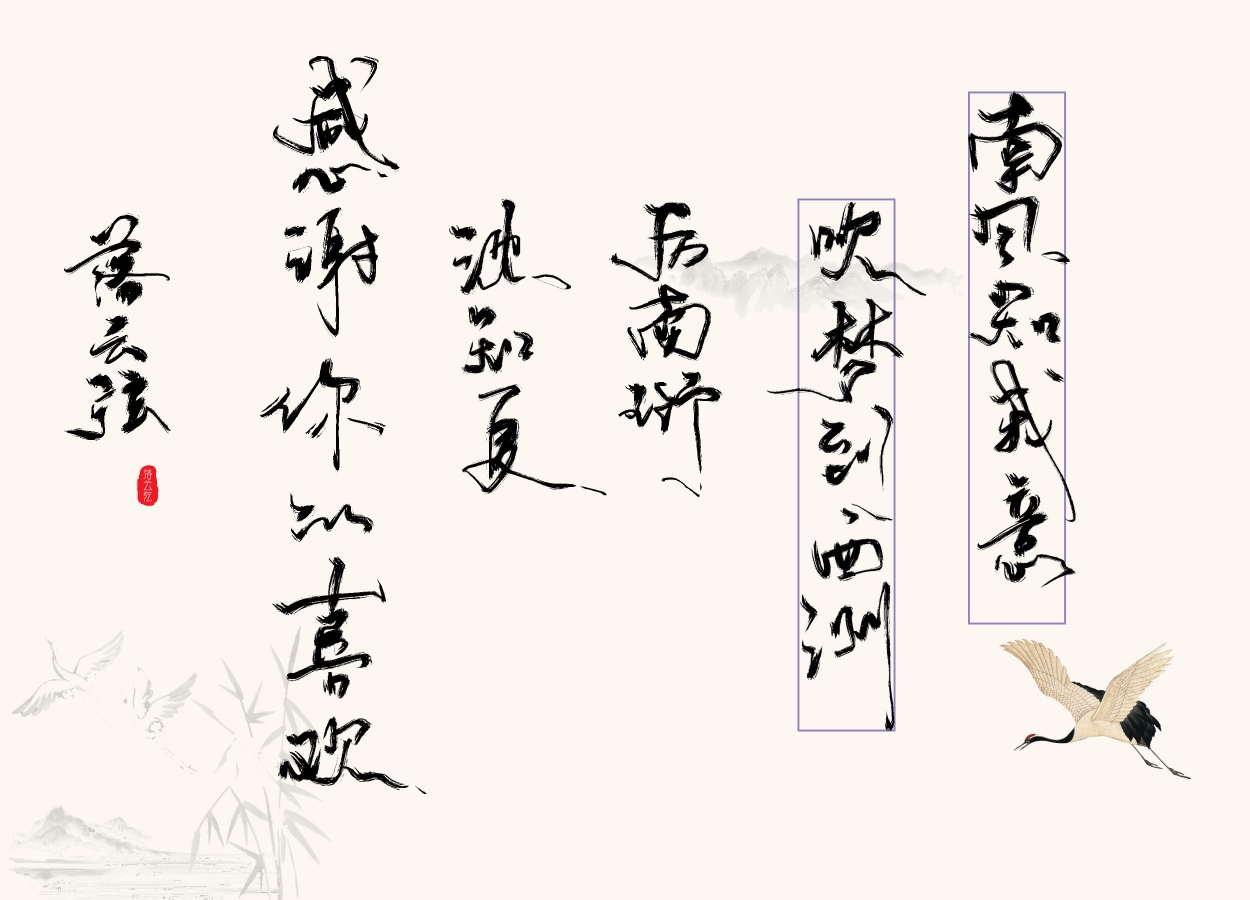 南风知我意
吹梦到西洲
厉南衍
池知夏
感谢你的喜欢
落云弦